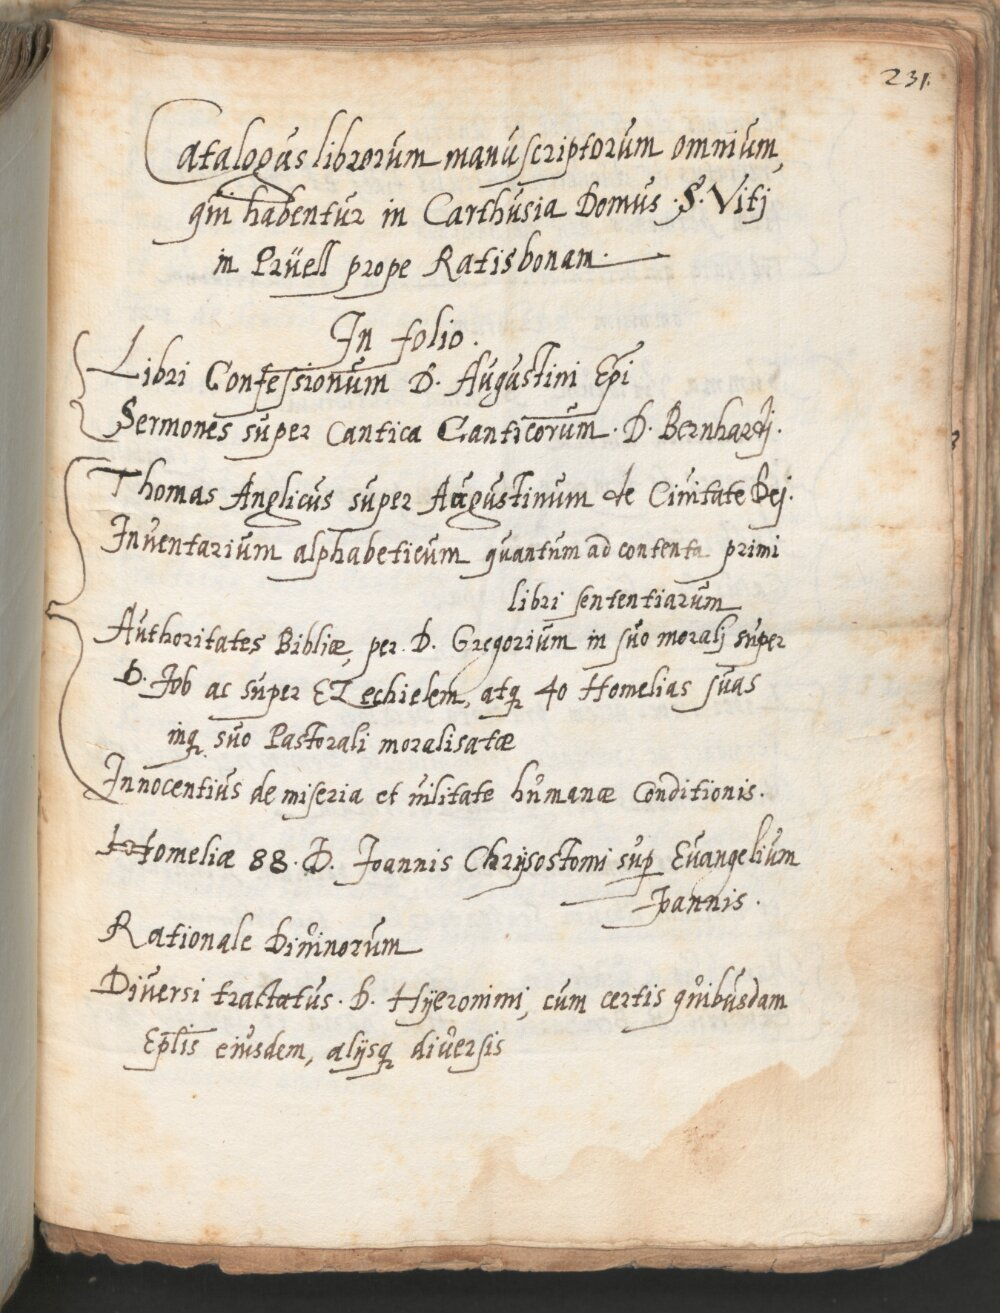 231.
Catalogus librorum manuscriptorum omnium,
qui habentur in Carthusia Domus S. Vitj
in Prüell prope Ratisbonam.
In folio.
Libri Confessionum D. Augustini Epi
Sermones super Cantica Canticorum. D. Bernhardj.
Thomas Anglicus super Augustinum de Ciuitate Dej.
Inuentarium alphabeticum quantum ad contenta primi
libri sententiarum
Authoritates Bibliæ, per D. Gregorium in suo moralj super
D. Job ac super EZechielem, atq 40 Homelias suas
inq suo Pastorali moralisatæ
Innocentius de miseria et uilitate humanæ Conditionis.
Homeliæ 88. D. Joannis Chrysostomi sup Euangelium
Joannis.
Rationale Diuinorum
Diuersi tractatus. D. Hyeronimi, cum certis quibusdam
Eplis eiusdem, alijsq diuersis